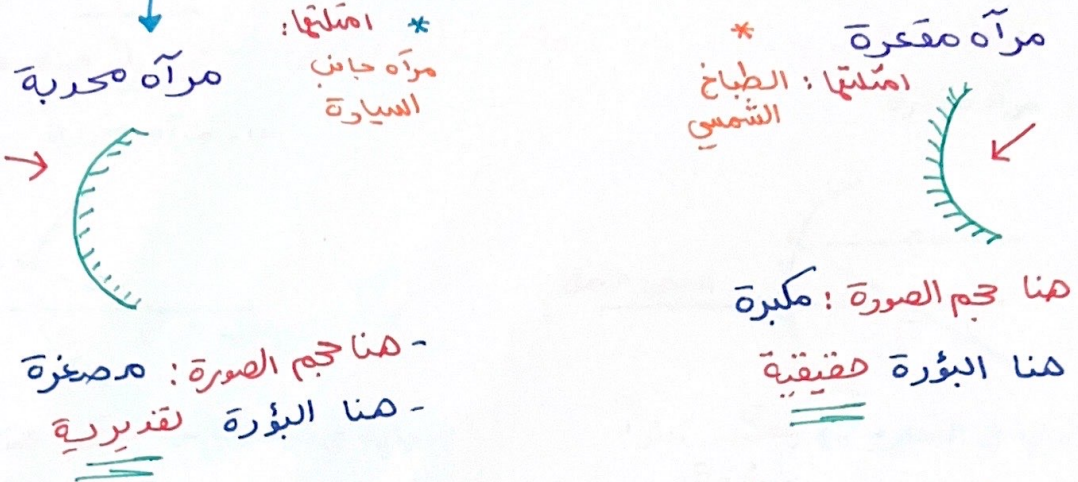 مرآه مقعرة
* امثلتها: الطباخ
الشمسي
هنا حجم الصورة: مكبرة
هنا البؤرة حقيقية
مرآه محدبة
* امثلتها:
مرآه جانب
السيارة
- هنا حجم الصورة: مصغرة
- هنا البؤرة تقديرية